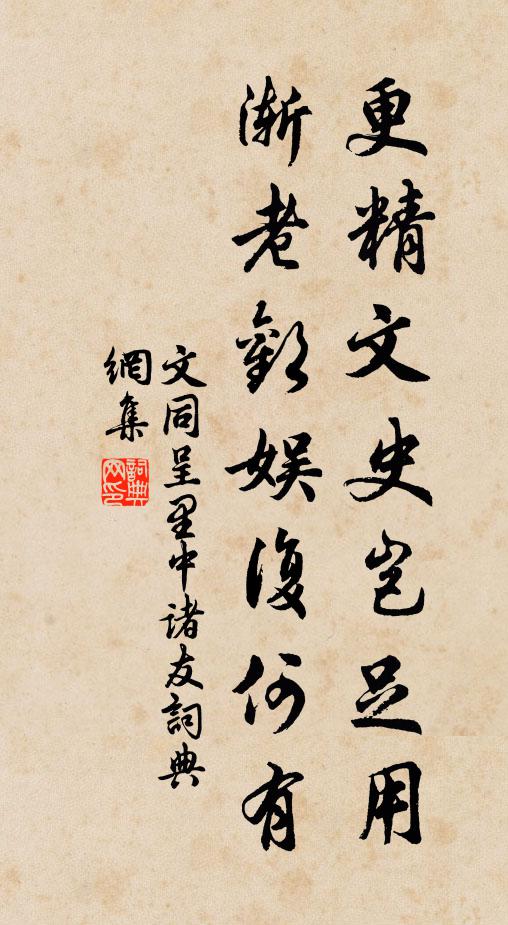 更精文史岂足用
渐老歡娱復何有
文同呈里中诸友詞典
網集
詞典
网印